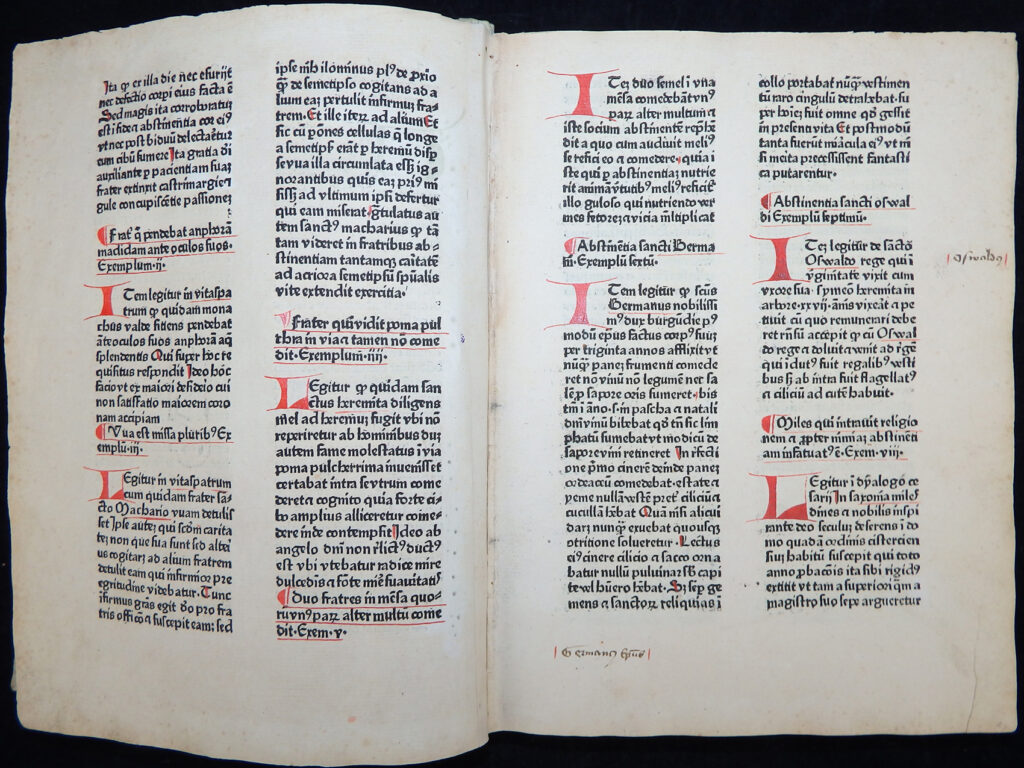 Ita qꝫ er illa die nec esurijt
nec defectio corpi eius facta ē
Sed magis ita corroboratur
est fide ⁊ abstinentia cor eiꝰ
vt nec post biduū delectaretur
eum cibū sumere Ita gratia di
auxiliante ꝑ pacientiam suaꝫ
frater extinxit castrimargie ⁊
gule concupiscētie passionē
¶Frat̄ qui pendebat anphorā
madidam ante oculos suos.
Exemplum·ij·
ITem legitur in vitaspa
trum ꝙ quidam mona
chus valde sitiens pendebat
ante oculos suos anphorā aq̄
splendentis Qui super hoc re
quisitus respondit Ideo hoc
facio vt ex maiori desiderio cui
non satisfatio maiorem coro
nam accipiam
¶Vua est missa pluribꝰ Ex
emplū·iij·
LEgitur in vitaspatrum
cum quidam frater sā
cto Machario vuam detulis
set Ipse auteꝫ qui scd̄m carita
teꝫ non que sua sunt sed alteriꝰ
cogitaꝫ ad alium fratrem
detulit eam qui infirmior pre
egritudine videbatur. Tunc
īfirmus grās egit dō pro fra
tris officō ⁊ suscepit eam; sed
ipse nihilominus plꝰ de ꝓxīo
qͣꝫ de semetipso cogitans ad a
lium eaꝫ pertulit infirmuꝫ fra
trem. Et ille iteꝝ ad aliuꝫ Et
sic cū ꝑ oēs cellulas qͣꝫ longe
a semetipsis erāt ꝑ heremū disꝑ
se vua illa circūlata essꝫ ig⸗
norantibus quis eaꝫ priꝰ mi
sissꝫ ad vltimum ipsi defertur
qui eam miserat gr̄tulatus au
tem sanctꝰ macharius ꝙ tā
tam videret in fratribus ab⸗
stinentiam tantamqꝫ caitatē
ad acriora semetipsū spūalis
vite extendit exercitia·
¶Frater qui vidit poma pul
chra in via ⁊ tamen nō come
dit·Exemplum·iiij·
LEgitur ꝙ quidam san
ctus heremita diligens
mel ad heremuꝫ fugit vbi nō
reperiretur ab hominibus Duꝫ
autem fame molestatus ī via
poma pulcherrima inuenisset
certabat intra se vtrum come
deret ⁊ cognito quia forte ci⸗
bo amplius alliceretur come⸗
dere inde contempsit Ideo ab
angelo dn̄i nō r̄lictꝰ ductꝰ
est vbi vtebatur radice mire
dulcedīs ⁊ fonte mire suauitatis
¶Duo fratres in mēsa quo⸗
ruꝫ vnꝰ paꝝ alter multū come
dit·Exem·v·
ITeꝫ duo semel ī vna
mēsa comedebāt vnꝰ
paꝝ alter multum ⁊
iste socium abstinentē rephē
dit a quo cum audiuit meliꝰ
se refici eo ⁊ comedere· quia i
ste qui ꝑ abstinētiaꝫ nutrie
rit animā v̓tutibꝰ meliꝰ reficit̄
illo guloso qui nutriendo ver
mes fetoreꝫ ⁊ vicia multiplicat
¶Abstinētia sancti Germa
ni·Exemplū sextū·
ITem legitur ꝙ scūs
Germanus nobilissi
mꝰ dux burgūdie pꝰ
modū ep̄us factus corpꝰ suuꝫ
per triginta annos afflixit vt
nūqꝫ paneꝫ frumenti comede
ret nō vinū nō legumē nec sa
lē ꝓ sapore oris sumeret· bis
tm̄ ī āno·s·in pascha ⁊ natali
dn̄i vinū bibebat qd̄ tn̄ sic lim
phatū sumebat vt modicū de
sapore vini retineret In r̄fecti
one pͥmo cinerē deinde paneꝫ
ordeaceū comedebat·estate ⁊
yeme nullā vestē pret̓ ciliciū ⁊
cucullā hēbat Quā nisi alicui
daꝫ nunqꝫ exuebat quousqꝫ
ꝯtritione solueretur· Lectus
eiꝰ cinere cilicio ⁊ sacco orna
batur nullū puluinar sꝫ capi
te vel hūero hēbat· Et semper ge
mens ⁊ sanctoꝝ reliquias ī
collo portabat nūqꝫ vestimen
tū raro cingulū detrahebat· su
per hoīeꝫ fuit omne qd̄ gessit
in presenti vita Et postmodū
tanta fuerūt miracula eiꝰ vt ni
si merita precessissent fantasti
ca putarentur·
¶Abstinentia sancti oswal
di Exemplū septimū·
ITeꝫ legitur de sāctō
Oswaldo rege qui ī
v̓ginitate vixit cum
vxore sua· spineō heremita in
arbore·xxvij·ānis vixerat ⁊ pe
tiuit cū quo remunerari debe
ret r̄nsū accepit ꝙ cū Oswal
do rege ⁊ doluit ⁊ venit ad r̄gē
qui īdutꝰ fuit regalibꝰ vesti
bus sꝫ ab intra fuit flagellatꝰ
⁊ ciliciū ad cutē habuit·
¶Miles qui intrauit religio
nem ⁊ ꝓpter nimiaꝫ abstinēti
am infatuatꝰ ē·Exem·viij·
LEgitur ī dyalogo ce
sarij In saxonia miles
diues ⁊ nobilis inspi
rante deo seculuꝫ deserens ī do
mo quadā ordinis cistercien
sis habitū suscepit qui toto
anno ꝓbacōis ita sibi rigidꝰ
extitit vt tam a superiori qꝫ a
magistro suo sepe argueretur
Oswaldꝰ
Germanꝰ Ep̄us